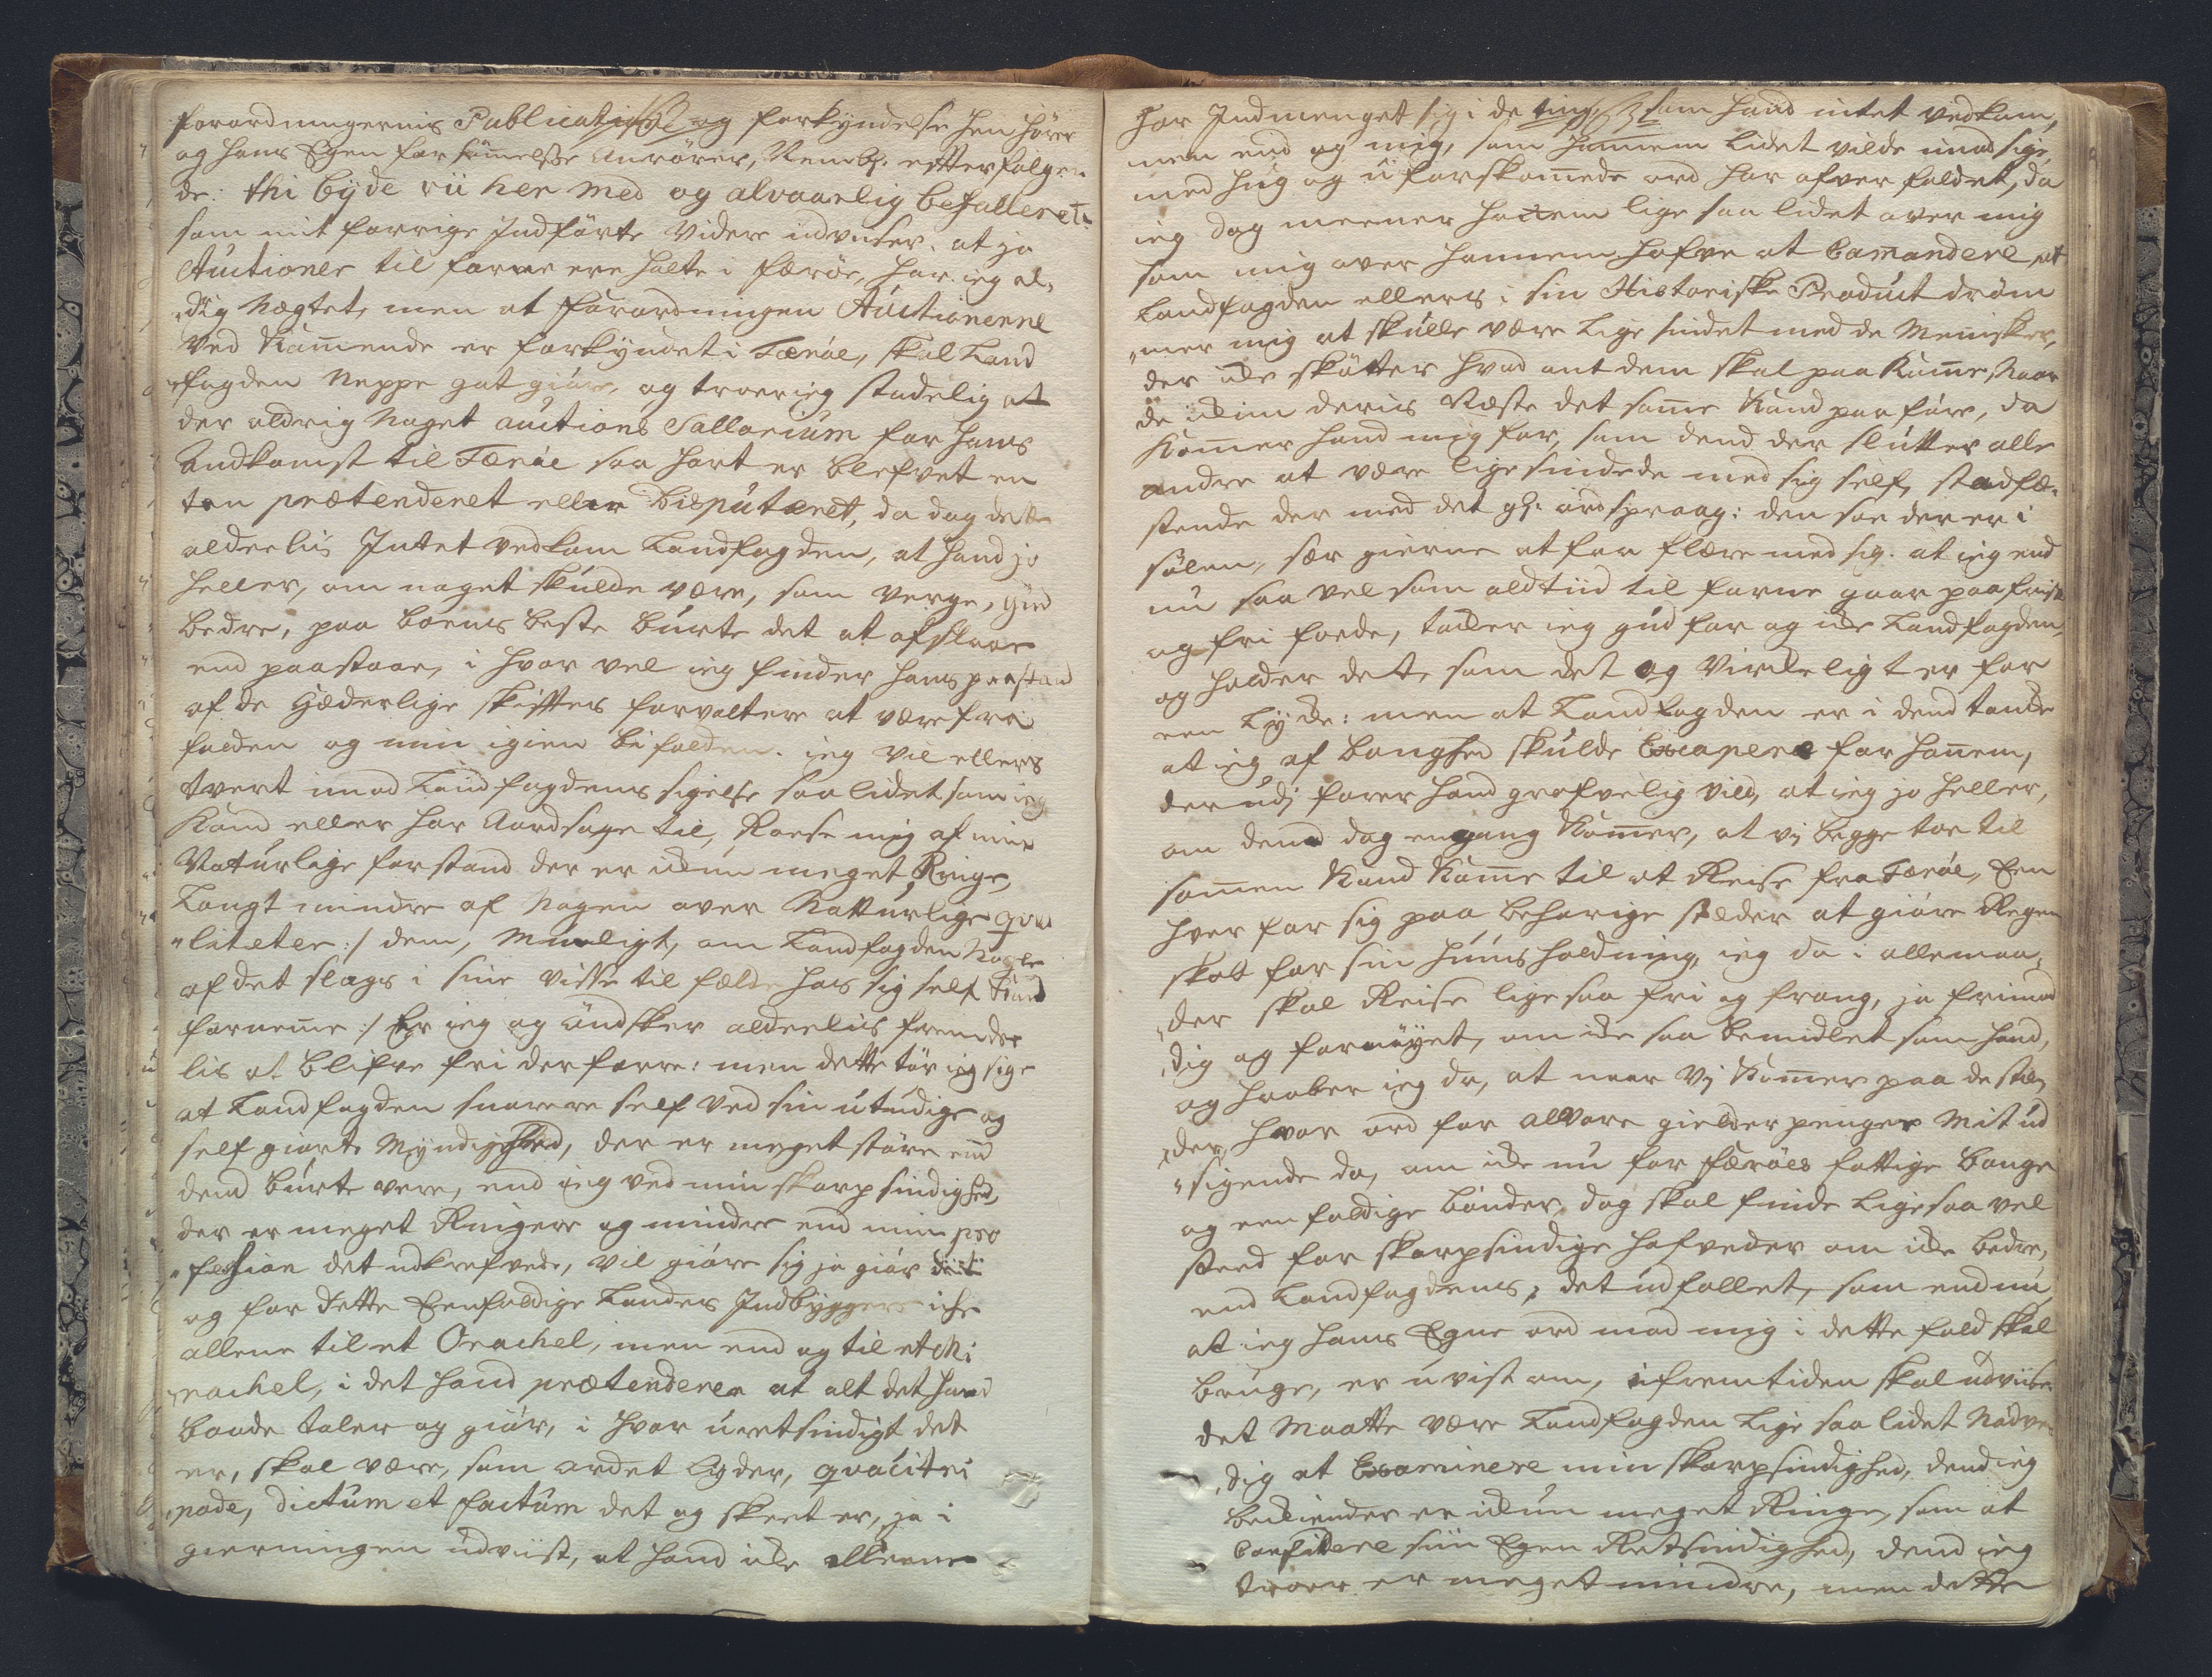 forordningernis Publication og forkyndelse hen hörer
og hans Egen forsömmelse anrörer, Neml. efterfölgen
de: thi byde vü her med og alvaarlig befalleret
som mit forrige Indförte videre udviser. at jo
Auctioner til forne ere holte i færöe, har ieg al,
drig Nægtet, men at forordningen Auctionerne
ved Kommende er forkyndet i Færöe, skal Land
fogden Neppe gat giöre, og troer ieg stadelig at
der aldrig noget auctions Sallarium for hans
Ankomst til Færöe saa hart er blefvet en
ten prætenderet eller disputeret, da dog dette
aldeelis Intet vedkom Landfogden, at hand jo
heller, om noget skulde være, som Verge, Gud
bedre, paa boens beste burte det at afslaae
end paastaae, i hvor vel ieg finder hans paastand
af de Hæderlige skifttes forvaltere at være fra
falden og min igien bifalden. ieg vil ellers
tvert imod Landfogdens sigelse saa lidet som ieg
kand eller har Aarsage til, Roese mig af min
Naturlige forstand der er ikkun meget Ringe,
Langt mindre af Nogen over Natturlige qva
liteter :/ dem, Mueligt, om Landfogden Nogle
af det slags i sine visse til fælde hos sig self kand
fornemme :/ Er ieg og öndsker aldeelis fremdee
lis at blifve fri derforre: men dette tör ieg sige
at Landfogden snarere self ved sin utidige og
self giorte Myndighed, der er meget störe end
dend burte vere, end ieg ved min skarpsindighed,
der er meget Ringere og mindre end min pro
fession det udkrefvede, vil giöre sig ja giör det
og for dette Eenfoldige Landes Indbyggere icke
allene til et Orachel, men end og til et Mi
rachel, i det hand prætenderer at alt det hand
baade taler og giör, i hvor uretsindigt det
er, skal være, som ordet lyder, qvacitri
pode, dictum et factum det og skeet er, ja i
gierningen udviist, at hand icke alleene
har Indmenget sig i de ting, som hand intet vedkom,
men end og mig, som hannem lidet vilde imod sige
med hug og uforskammede ord har ofverfaldet, da
ieg dog meener hannem lige saa lidet over mig
som mig over hannem hafve at Comandere, at
Landfogden ellers i sin Historiske Product dröm
mer mig at skulle være Lige sindet med de Mennisker,
der icke skötter hvad ont dem skal paa Komme, Naar
de ickun deris Næste det samme kand paa före, da
kommer hand mig for, som dend der slutter alle
andre at være ligesindede med sig self, stadfæ,
stende der med det gl. ordsprog: den soe der er i
sölen, sær gierne at faa flere med sig. at ieg end
nu saa vel som altiid til forne gaar paa frisk
og fri foede, tacker ieg gud for og icke Landfogden,
og holder dette, som det og virkeligt er for
een lycke: men at Landfogden er i dend tancke
at ieg af banghed skulde Excapere for hannem,
derudj farer hand grofvelig vild, at ieg jo heller,
om dend dag engang kommer, at vj begge toe til
sammen kand komme til at Reise fra Færöe, Een
hver for sig paa behörige stæder at giöre Regen
skab for sin huusholdning, ieg da i allemaa,
der skal Reise lige saa fri og frang, ja frimod
dig og fornöyet, om icke saa bemidlet som hand,
og haaber ieg da, at naar vj kommer paa de stæ,
der, hvor ord for alvore gielder penger Mit ud
sigende da, om icke nu for Færöes fattige bange
og eenfoldige bönder, dog skal finde lige saa vel
sted for skarpsindige hofveder om icke bedre,
end Landfogdens, det udfallet, som endnu
at ieg hans Egne ord mod mig i dette fald skal
bruge, er uvist om, i fremtiden skal udviise
det Maatte være Landfogden lige saa lidet Nödven
dig at Examinere min skarpsindighed, dend ieg
bekiender er ickun meget Ringe, som at
Confidere siin Egen Retsindighed, dend ieg
troer er meget mindre, men dette